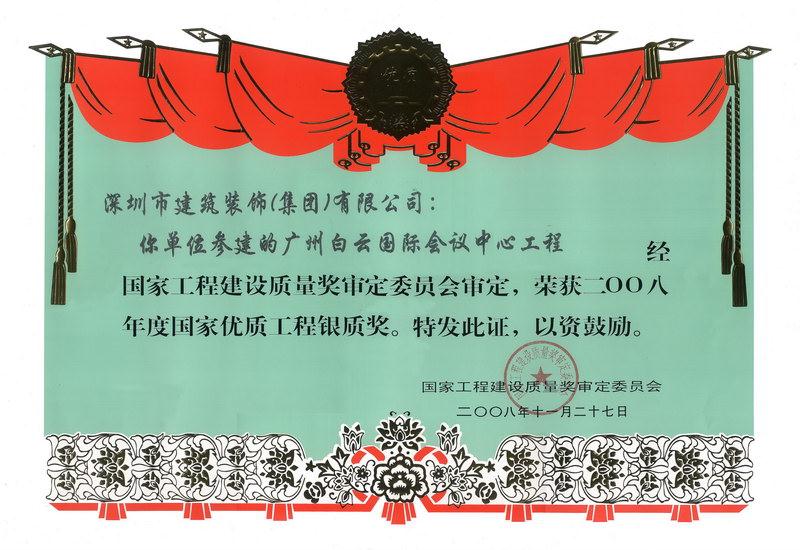 优质
深圳市建筑装饰(集团)有限公司：
你单位参建的广州白云国际会议中心工程 经
国家工程建设质量奖审定委员会审定，荣获二〇〇八
年度国家优质工程银质奖。特发此证，以资鼓励。
国家工程建设质量奖审定委员会
二〇〇八年十一月二十七日